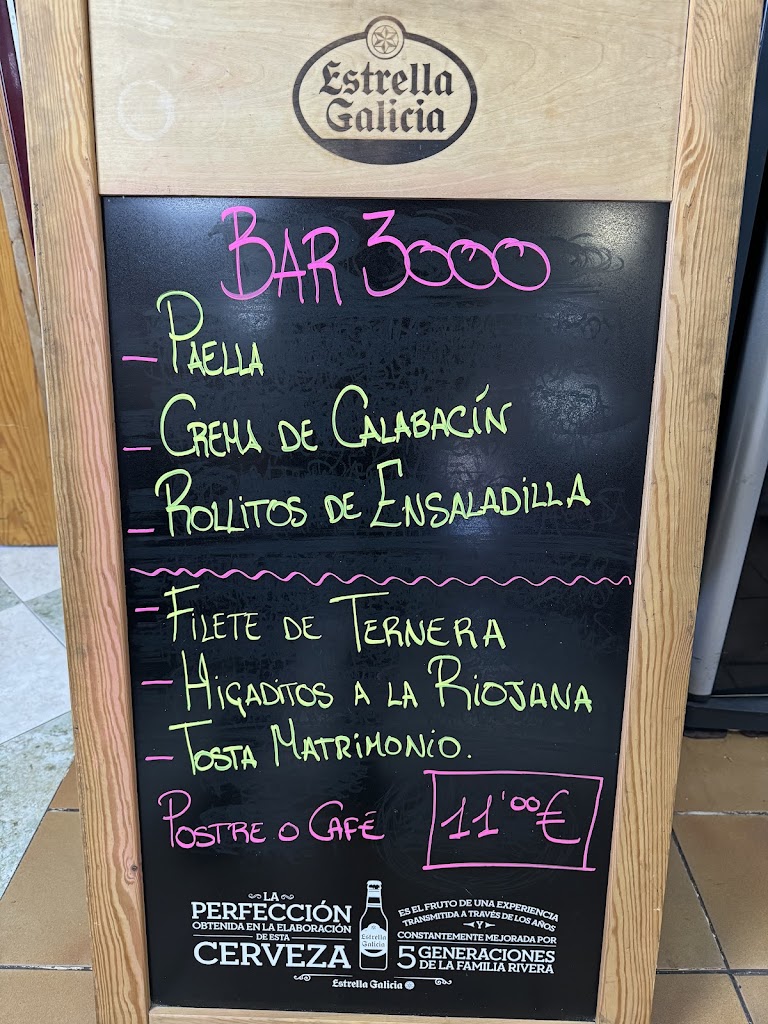 Estrella
Galicia
BAR 3000
- PAELLA
- CREMA DE CALABACÍN
- ROLLITOS DE ENSALADILLA
- FILETE DE TERNERA
- HIGADITOS A LA RIOJANA
- TOSTA MATRIMONIO.
POSTRE O CAFÉ
11'00€
LA
PERFECCIÓN
OBTENIDA EN LA ELABORACIÓN
DE ESTA
CERVEZA
Estrella
Galicia
ES EL FRUTO DE UNA EXPERIENCIA
TRANSMITIDA A TRAVÉS DE LOS AÑOS
Y
CONSTANTEMENTE MEJORADA POR
5 GENERACIONES
DE LA FAMILIA RIVERA
Estrella Galicia